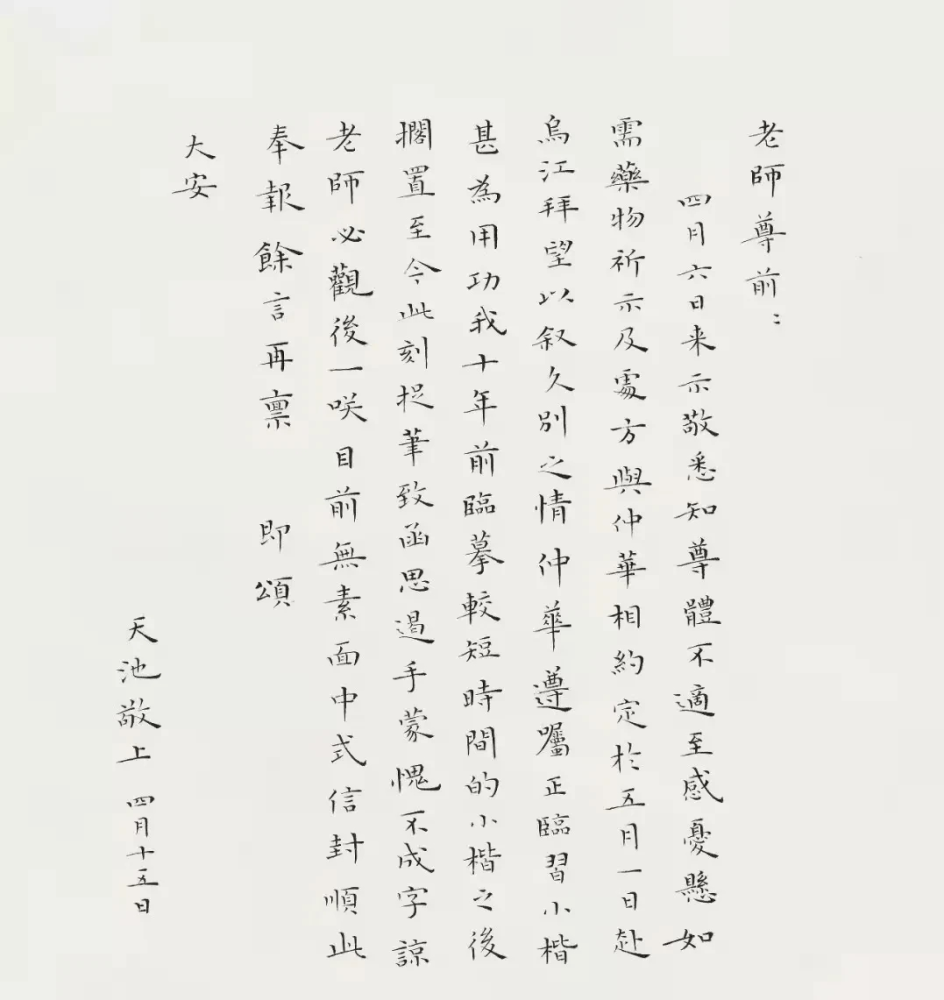 老師尊前：
四月六日来示敬悉知尊體不適至感憂懸如
需藥物祈示及處方與仲華相約定於五月一日赴
烏江拜望以叙久别之情仲華遵囑正臨習小楷
甚為用功我十年前臨摹較短時間的小楷之後
擱置至今此刻捉筆致函思遏手蒙愧不成字諒
老師必觀後一咲目前無素面中式信封順此
奉報餘言再禀 即頌
大安
天池敬上 四月十五日